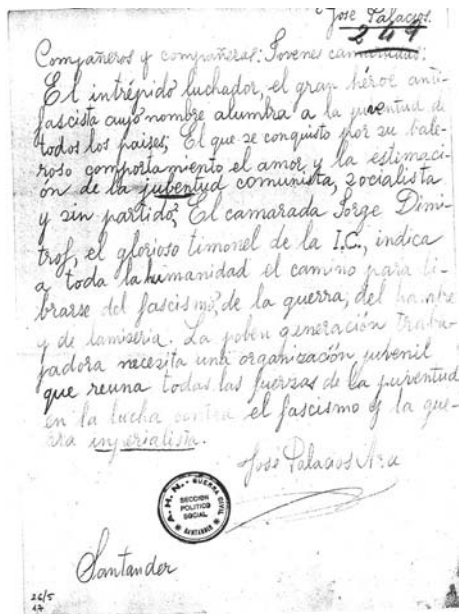 José Palacios.
249
Compañeros y compañeras: Jovenes camaradas:
El intrépido luchador, el gran héroe anti-
fascista cuyo nombre alumbra a la juventud de
todos los paises; El que se conquisto por su bale-
roso comportamiento el amor y la estimaci-
ón de la jubentud comunista, socialista
y sin partido; El camarada Jorge Dimi-
trof, el glorioso timonel de la I.C., indica
a toda la humanidad el camino para li-
brarse del fascismo, de la guerra, del hambre
y de la miseria. La joben generación traba-
jadora necesita una organización jubenil
que reuna todas las fuerzas de la juventud
en la lucha contra el fascismo y la gue-
rra imperialista.
José Palacios Ara
A.H.N. - GUERRA CIVIL
SECCION
POLITICO
SOCIAL
SANTANDER
Santander
26/5
47